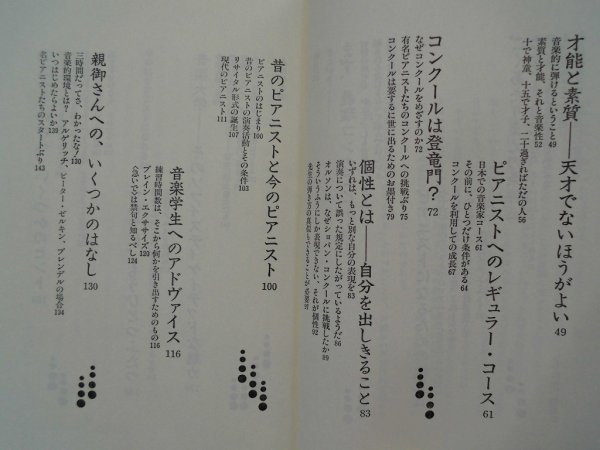 才能と素質――天才でないほうがよい 49
音楽的に弾けるということ 49
素質と才能、それと音楽性 52
十で神童、十五で才子、二十過ぎればただの人 56
ピアニストへのレギュラー・コース 61
日本での音楽家コース 61
その前に、ひとつだけ条件がある 64
コンクールを利用しての成長 67
コンクールは登竜門？ 72
なぜコンクールをめざすのか 72
有名ピアニストたちのコンクールへの挑戦ぶり 75
コンクールは要するに世に出るためのお墨付き 79
個性とは――自分を出しきること 83
いずれは、もっと別な自分の表現を 83
演奏について誤った規定にしたがっているようだ 86
オルソンは、なぜショパン・コンクールに挑戦したか 89
そういうふうにしか表現できない、それが個性 92
先生の弾き方の真似もできることが必要
昔のピアニストと今のピアニスト 100
ピアニストのはじまり 100
昔のピアニストの演奏活動とその条件 103
リサイタル形式の誕生 107
現代のピアニスト 111
音楽学生へのアドヴァイス 116
練習時間数は、そこから何かを引き出すためのもの 116
ブレイン・エクササイズ 120
〈急いで〉は禁句と知るべし 124
親御さんへの、いくつかのはなし 130
三時間だってさ、わかったな！ 130
音楽的環境とは？ アルゲリッチ、ピーター・ゼルキン、ブレンデルの場合 134
いつはじめたらよいか 139
名ピアニストたちのスタートぶり 143